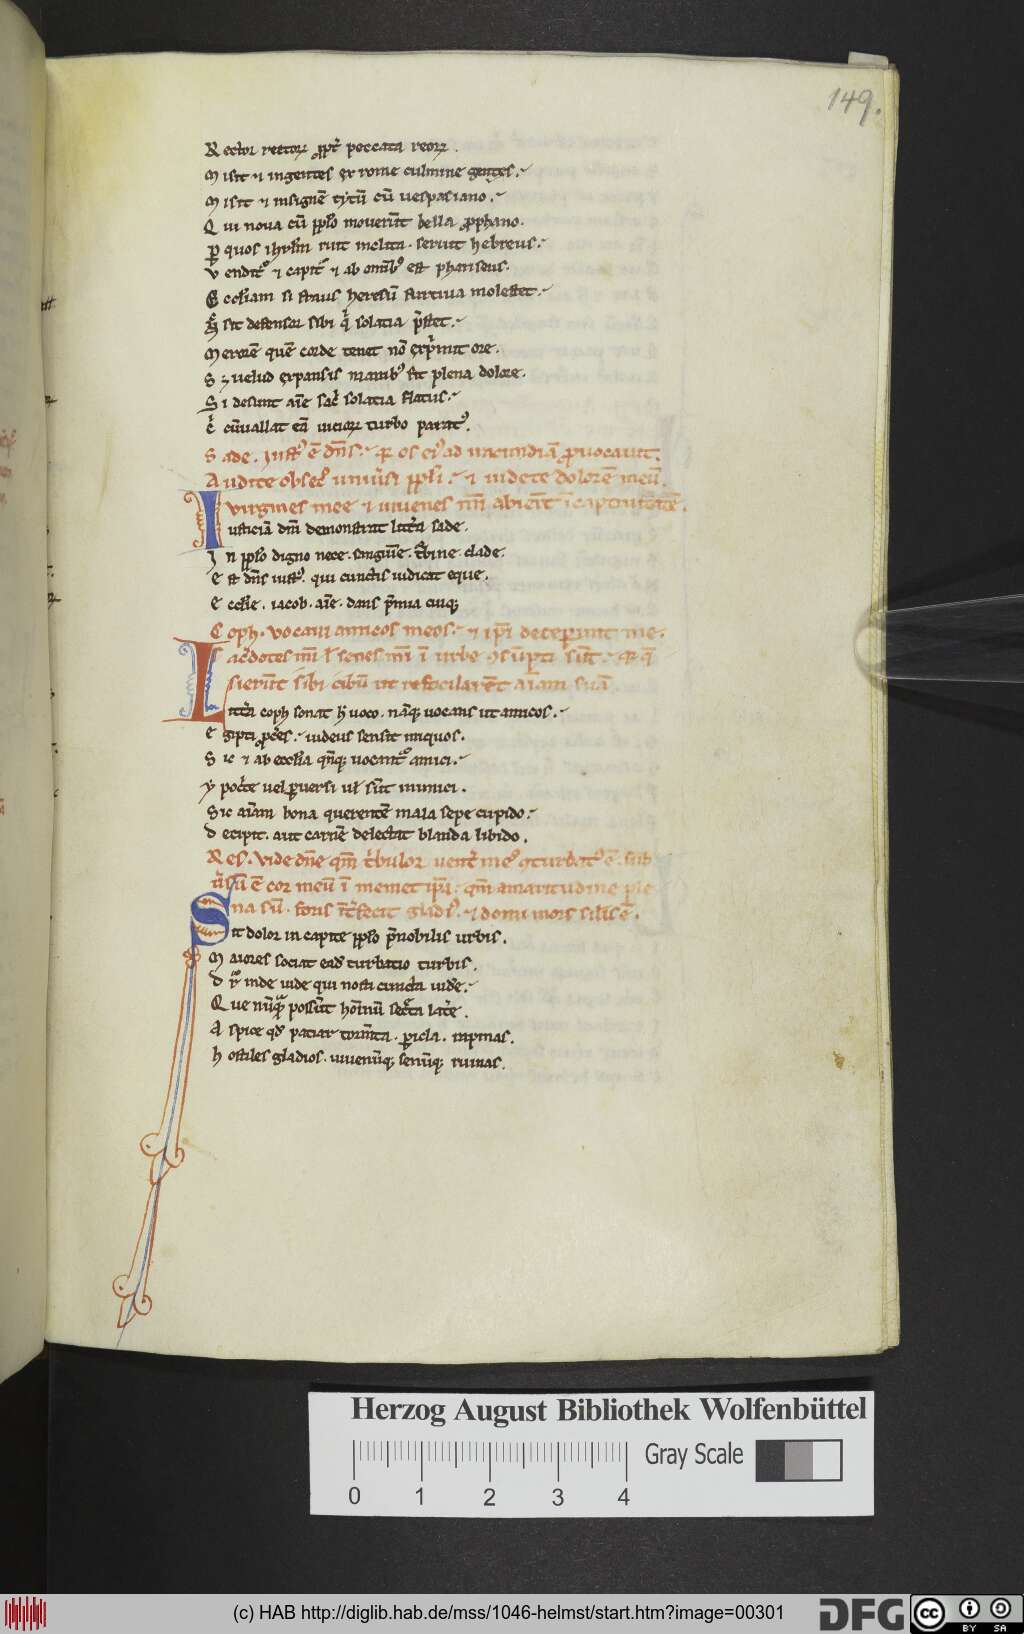 149.
Rector rectorꝝ ꝓpt̾ peccata reorꝝ.
Misit ⁊ ingentes ex rome culmine gentes.
Misit ⁊ insignē tytū cū uespasiano.
Qui noua cū pplo mouerūt bella ꝓphano.
ꝑ quos ihrlm ruit inclita. seruit hebreus.
Venditꝰ ⁊ captꝰ ⁊ ab omībꝰ est phariseus.
Eccl̄iam si seuus heresū furtiua molestet.
sit defensor sibi q̄ solacia p̄stet.
Merorē quē corde tenet nō exprimit ore.
S; uelud expansis manibꝰ sit plena dolore.
Si desunt aīe sac̄ solacia flatus.
cūuallat eā uicioꝝ turbo paratꝰ.
Sade. Iustꝰ ē dn̄s. qꝛ os eiꝰ ad iracundiā ꝓuocaui.
Audite obsec̄ uniūsi ppl̄i. ⁊ uidete dolorē meū.
uirgines mee ⁊ iuuenes mei abierūt ī captiuitatē.
Iusticiā dn̄i demonstrat litt̄a sade.
In pplo digno nece. sanguīe. t̄bine clade.
Est dn̄s iustꝰ. qui cunctis iudicat eque.
Eccl̄ie. iacob. aīe. dans p̄mia cuiq;
Coph. Vocaui amicos meos. ⁊ ip̄i deceperunt me.
sac̄dotes mei ⁊ senes mei ī urbe ꝯsūpti sūt. qꝛ q̄
sierūt sibi cibū ut refocilarēt aīam suā
Litt̄a coph sonat h̄ uoco. nāq; uocans ut amicos.
Egipti ꝓc̄es. iudeus sensit iniquos.
Sic ⁊ ab eccl̄ia qn̄q; uocantꝰ amici.
ypoc̄te uel ꝑuersi ul̄ sūt inimici.
Sic aīam bona querentē mala sepe cupido.
Decipit. aut carnē delectat blanda libido.
Res. Vide dn̄e qm̄ t̄bulor uent̄ meꝰ ꝯturbatꝰ ē. sub
ū̄sū ē cor meū ī memet ip̄a. qm̄ amaritudine ple
na sū. foris int̄fecit gladiꝰ. ⁊ domi mors sil̄is ē.
Sit dolor in capite pplo p̄nobilis urbis.
Maiores sociat eadē turbatio turbis.
Dr̄ inde uide qui nosti cuncta uidē.
Que nūqua possūt hoīnū sec̄ta lat̄e.
Aspice qd̄ patiar torm̄ta. ꝑicla. rapinas.
Hostiles gladios. iuuenūq; senūq; ruinas.
Herzog August Bibliothek Wolfenbüttel
0 1 2 3 4
Gray Scale
(c) HAB http://diglib.hab.de/mss/1046-helmst/start.htm?image=00301
DFG
cc BY SA